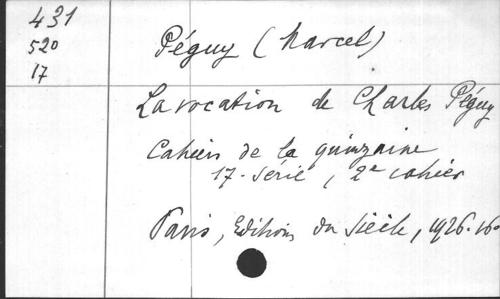 431
520
17
Péguy (Marcel)
La vocation de Charles Péguy
Cahiers de la quinzaine
17e série, 2e cahier
Paris, Editions du siècle, 1926. 16°